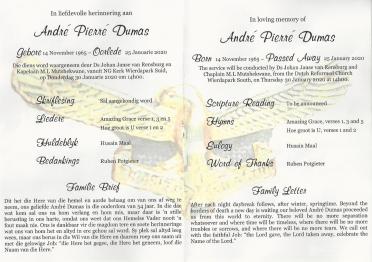 In liefdevolle herinnering aan
André Pierré Dumas
Gebore 14 November 1965 – Oorlede 25 Januarie 2020
Die diens word waargeneem deur Ds Johan Janse van Rensburg en
Kapelein M.L Mutshekwane, vanuit NG Kerk Wierdapark Suid,
op Donderdag 30 Januarie 2020 om 14h00.
Skriflesing Sal aangekondig word
Liedere Amazing Grace verse 1, 3 en 5
Hoe groot is U verse 1 en 2
Huldeblyk Husain Maal
Bedankings Ruben Potgieter
Familie Brief
Dit het die Here van die hemel en aarde behaag om van ons af weg te
neem, ons geliefde André Dumas in die ouderdom van 54 jaar. In die dae
wat kom sal ons na hom verlang en hom mis, maar daar is 'n stille
berusting in ons harte, omdat ons weet dat ons Hemelse Vader nooit 'n
fout maak nie. Ons is dankbaar vir die magdom tere en soete herinneringe
wat ons van hom het en altyd in ere gehou sal word. Sy plek sal altyd leeg
wees, maar ons berus in die Wil van die Here en daarom roep ons saam uit
met die gelowige Job: "die Here het gegee, die Here het geneem, loof die
Naam van die Here."
In loving memory of
André Pierré Dumas
Born 14 November 1965 – Passed Away 25 January 2020
The service will be conducted by Ds Johan Janse van Rensburg and
Chaplain M.L Mutshekwane, from the Dutch Reformed Church
Wierdapark South, on Thursday 30 January 2020 at 14h00.
Scripture Reading To be announced
Hymns Amazing Grace, verses 1, 3 and 5
Hoe groot is U, verses 1 and 2
Eulogy Husain Maal
Word of Thanks Ruben Potgieter
Family Letter
After each night daybreak follows, after winter, springtime. Beyond the
borders of death a new day is waiting our beloved André Dumas proceeded
us from this world to eternity. There will be no more separation
whatsoever and where time will be timeless, where there will be no more
troubles or sorrows, and where there will be no more tears. We call out
with the faithful Job: "the Lord gave, the Lord taken away, celebrate the
Name of the Lord."